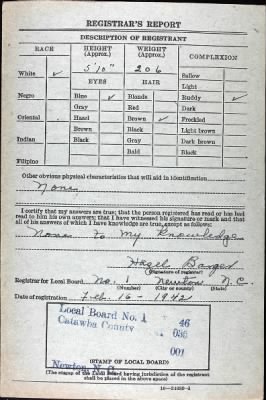 REGISTRAR'S REPORT
DESCRIPTION OF REGISTRANT
RACE HEIGHT (Approx.) WEIGHT (Approx.) COMPLEXION
5'10" 206
White ✓ Sallow
Light
EYES HAIR
Negro Blue ✓ Blonde Ruddy ✓
Gray Red Dark
Oriental Hazel Brown ✓ Freckled
Brown Black Light brown
Indian Black Gray Dark brown
Bald Black
Filipino
Other obvious physical characteristics that will aid in identification
None
I certify that my answers are true; that the person registered has read or has had
read to him his own answers; that I have witnessed his signature or mark and that
all of his answers of which I have knowledge are true, except as follows:
None to My Knowledge
Hazel
(Signature of registrar)
Registrar for Local Board No. 1 Newton N.C.
(Number) (City or county) (State)
Date of registration Feb. 16 - 1942
Local Board No. 1 46
Catawba County 035
001
Newton N. C.
(STAMP OF LOCAL BOARD)
(The stamp of the Local Board having jurisdiction of the registrant
shall be placed in the above space)